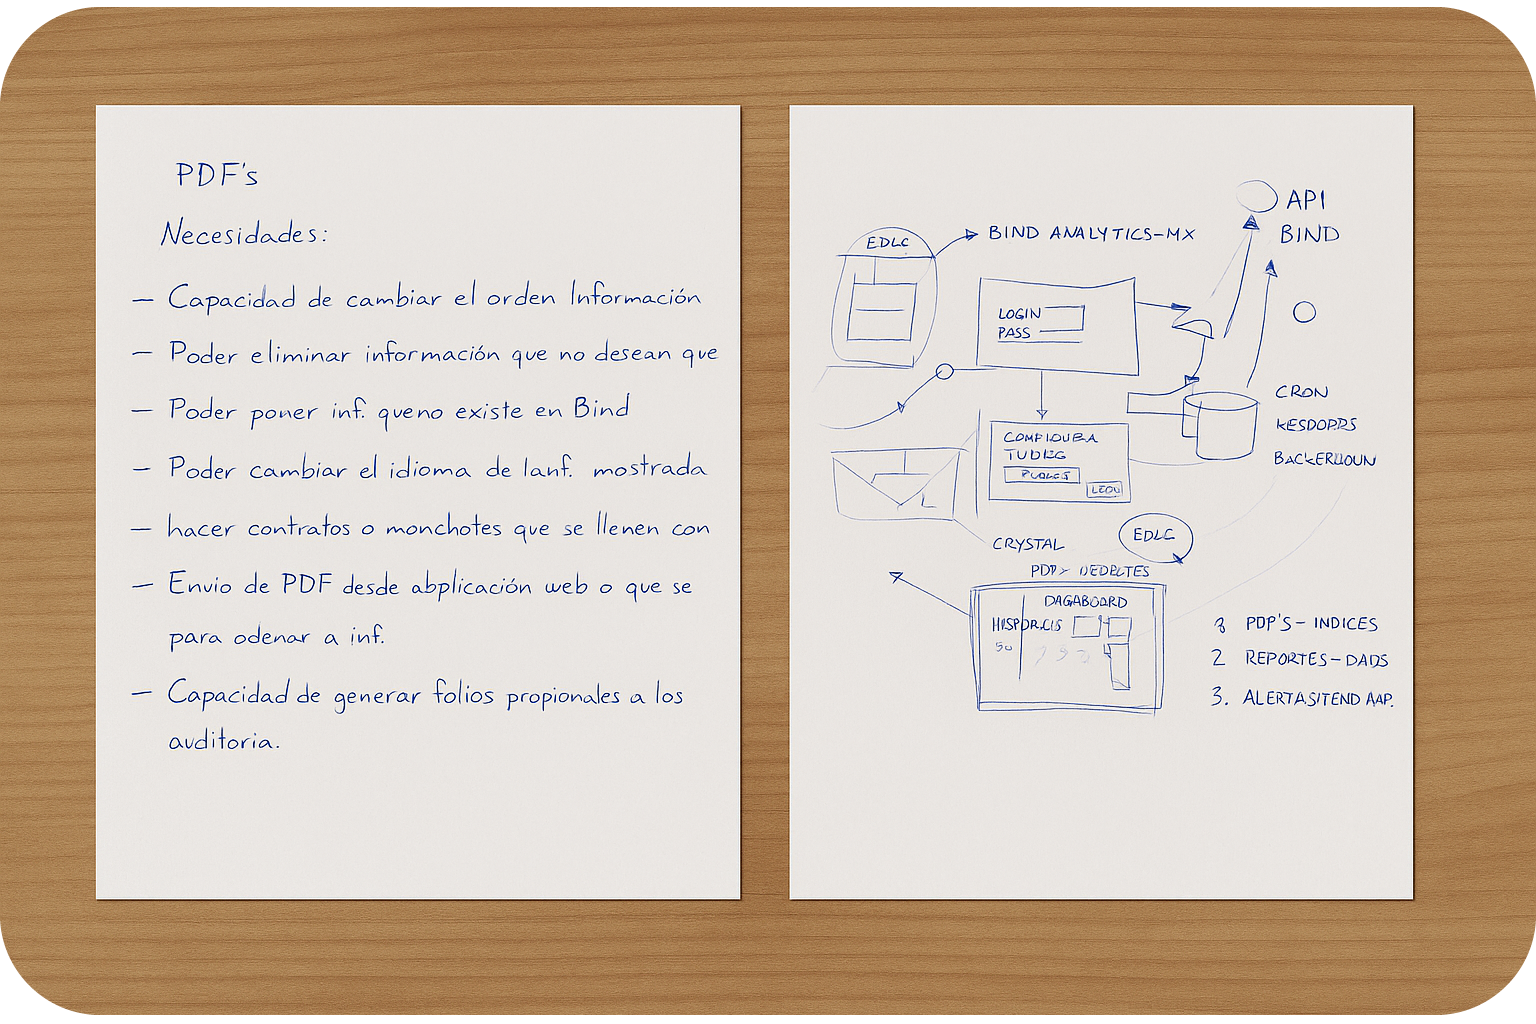 PDF's
Necesidades:
— Capacidad de cambiar el orden Información
— Poder eliminar información que no desean que
— Poder poner inf. queno existe en Bind
— Poder cambiar el idioma de lanf. mostrada
— hacer contratos o monchotes que se llenen con
— Envio de PDF desde abplicación web o que se
para odenar a inf.
— Capacidad de generar folios propionales a los
auditoria.
API
BIND
EDLC
BIND ANALYTICS-MX
LOGIN
PASS
CRON
KESDOPRS
BACKERUOUN
COMFIOUBA
CRYSTAL
EDLC
DAGABOARD
50
PDP'S - INDICES
2 REPORTES - DADS
3. ALERTASITEND AAP.